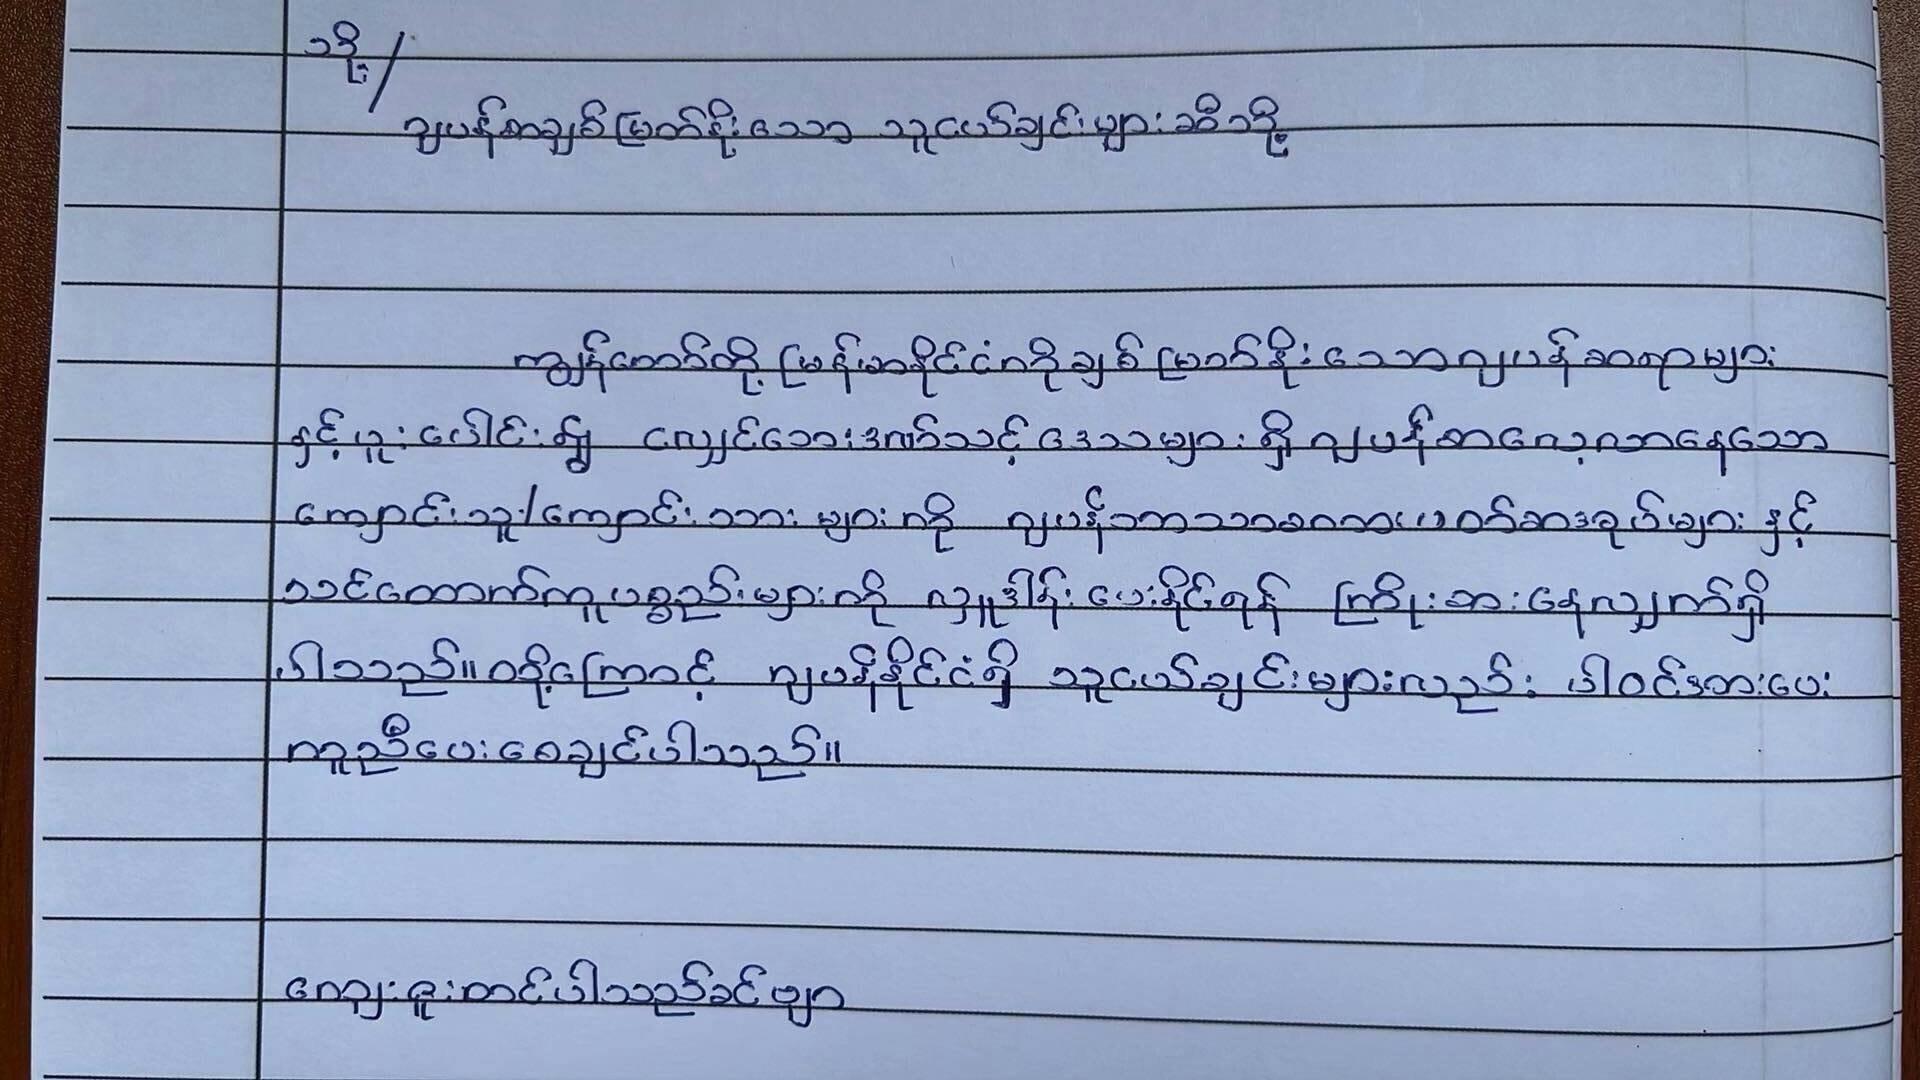 သို့/
ဂျပန်စာချစ်မြတ်နိုးသော သူငယ်ချင်းများဆီသို့
ကျွန်တော်တို့ မြန်မာနိုင်ငံကိုချစ်မြတ်နိုးသောဂျပန်ဆရာများ
နှင့် ပူးပေါင်း၍ လျှင်ဘေးဒဏ်သင့်ဒေသများရှိ ဂျပန်စာလေ့လာနေသော
ကျောင်းသူ/ကျောင်းသားများကို ဂျပန်ဘာသာစကားဖတ်စာအုပ်များ နှင့်
သင်ထောက်ကူပစ္စည်းများကို လှူဒါန်းပေးနိုင်ရန် ကြိုးစားနေလျှက်ရှိ
ပါသည်။ ထို့ကြောင့် ဂျပန်နိုင်ငံရှိ သူငယ်ချင်းများလည်း ပါဝင်အားပေး
ကူညီပေးစေချင်ပါသည်။
ကျေးဇူးတင်ပါသည်ခင်ဗျာ